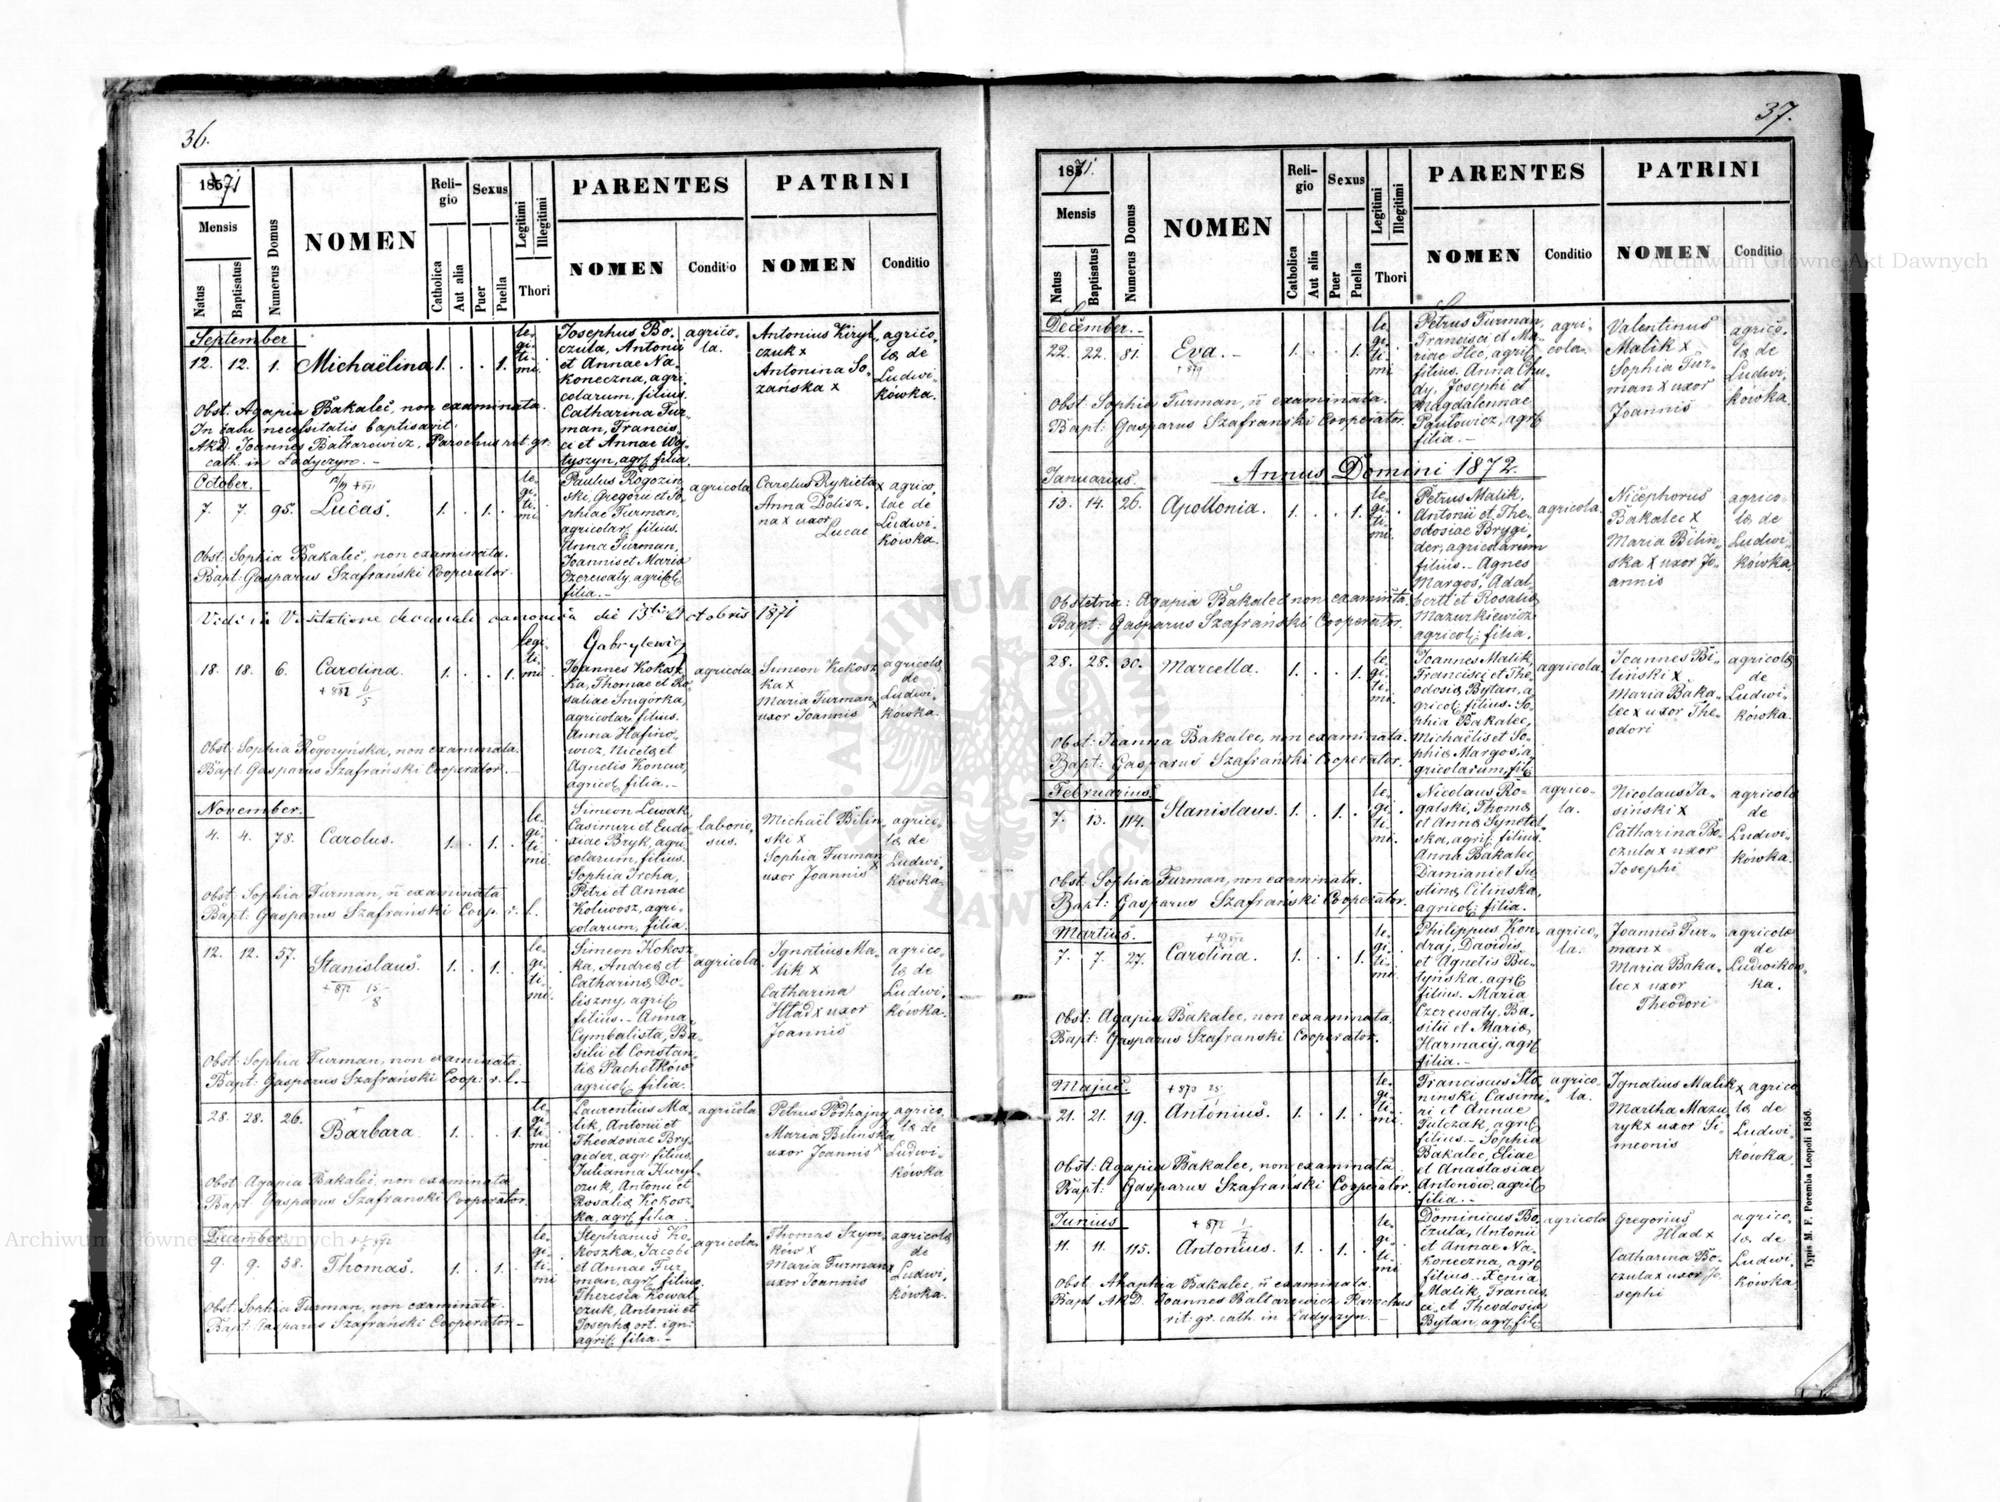 36.
1871
Mensis
Natus
Baptisatus
Numerus Domus
NOMEN
Religio
Catholica
Aut alia
Sexus
Puer
Puella
Legitimi
Illegitimi
Thori
PARENTES
NOMEN
Conditio
PATRINI
NOMEN
Conditio
September
12. 12. 1. Michaëlina 1. . . 1.
le-
gi-
ti-
mi.
Josephus Bo-
czula, Antonii
et Annae Na-
koneczna, agri-
colarum, filius.
Catharina Fur-
man, Francis-
ci et Annae Wo-
tyszyn, agr. filia.
agrico-
la.
Antonius Kiryl-
czuk x
Antonina So-
zańska x
agrico-
lae de
Ludwi-
kówka.
Obst. Agapia Bakalec, non examinata.
In casu necessitatis baptisavit
AkD. Joannes Baltarowicz, Parochus rit. gr.
cath. in Ladyczyn. -
October.
7. 7. 95. Lucas. 1. . 1. .
le-
gi-
ti-
mi.
Paulus Rogozin-
ski, Gregorii et So-
phiae Furman,
agricolar. filius.
Anna Furman,
Joannis et Maria
Czerewaty, agricol.
filia. -
agricola
Carolus Rykieta x
Anna Dolisz-
na x uxor
Lucae
agrico-
lae de
Ludwi-
kówka.
Obst: Sophia Bakalec, non examinata.
Bapt: Gasparus Szafrański Cooperator.
Vidi in Visitatione decanali canonica die 13tia Octobris 1871
Gabrylewicz
18. 18. 6. Carolina. 1. . . 1.
+ 882 6/5
legi-
ti-
mi.
Joannes Kokosz-
ka, Thomae et Ro-
saliae Snigórka,
agricolar. filius.
Anna Hafiro-
wicz, Nicolai et
Agnetis Koncur,
agricol. filia. -
agricola
Simeon Kokosz-
ka x
Maria Furman x
uxor Joannis
agricola
de
Ludwi-
kówka.
Obst: Sophia Rogozyńska, non examinata.
Bapt: Gasparus Szafrański Cooperator. -
November.
4. 4. 78. Carolus. 1. . 1. .
le-
gi-
ti-
mi.
Simeon Lewak,
Casimiri et Eudo-
xiae Bryk, agri-
colarum, filius.
Sophia Ircha,
Petri et Annae
Koliwosz, agri-
colarum, filia.
laborio-
sus.
Michaël Bilin-
ski x
Sophia Furman x
uxor Joannis
agrico-
lae de
Ludwi-
kówka
Obst: Sophia Furman, n̄ examinata
Bapt: Gasparus Szafrański Coop. r. l.
12. 12. 57. Stanislaus. 1. . 1. .
+ 872 15/8
le-
gi-
ti-
mi.
Simeon Kokosz-
ka, Andreae et
Catharinae Do-
liszny, agric.
filius. - Anna
Cymbalista, Ba-
silii et Constan-
tiae Pachetków
agricol. filia.
agricola.
Ignatius Ma-
lik x
Catharina
Hład x uxor
Joannis
agrico-
lae de
Ludwi-
kówka.
Obst: Sophia Furman, non examinata.
Bapt: Gasparus Szafrański Coop: r. l. -
28. 28. 26. Barbara. 1. . . 1.
le-
gi-
ti-
mi.
Laurentius Ma-
lik, Antonii et
Theodosiae Bry-
gider, agr. filius.
Julianna Kuryl-
czuk, Antonii et
Rosaliae Kokosz-
ka, agr. filia
agricola
Petrus Podhajny
Maria Bilinska
uxor Joannis x
agrico-
lae de
Ludwi-
kówka
Obst: Agapia Bakalec, non examinata
Bapt: Gasparus Szafranski Cooperator.
December
9. 9. 58. Thomas. 1. . 1. .
le-
gi-
ti-
mi
Stephanus Ko-
koszka, Jacobi
et Annae Fur-
man, agr. filius.
Theresia Kowal-
czuk, Antonii et
Josepha ort. ign:
agric. filia. -
agricola.
Thomas Szym-
ków x
Maria Furman x
uxor Joannis
agricolae
de
Ludwi-
kówka.
Obst: Sophia Furman, non examinata.
Bapt: Gasparus Szafrański Cooperator. -
37.
1871.
Mensis
Natus
Baptisatus
Numerus Domus
NOMEN
Religio
Catholica
Aut alia
Sexus
Puer
Puella
Legitimi
Illegitimi
Thori
PARENTES
NOMEN
Conditio
PATRINI
NOMEN
Conditio
December. -
22. 22. 81. Eva. - 1. . . 1.
+ 879
le-
gi-
ti-
mi
Petrus Furman,
Francisci et Ma-
riae Ilec, agric.
filius. Anna Chu-
dy, Josephi et
Magdalennae
Pautowicz, agric.
filia. -
agri-
cola.
Valentinus
Malik x
Sophia Fur-
man x uxor
Joannis
agrico-
lae de
Ludwi-
kówka.
Obst: Sophia Furman, n̄ examinata.
Bapt: Gasparus Szafrański Cooperator.
Annus Domini 1872.
Januarius.
13. 14. 26. Apollonia. 1. . . 1.
le-
gi-
ti-
mi.
Petrus Malik,
Antonii et The-
odosiae Brygi-
der, agricolarum
filius. - Agnes
Margos, Adal-
berti et Rosaliae
Mazurkiewicz
agricol: filia.
agricola.
Nicephorus
Bakalec x
Maria Bilin-
ska x uxor Jo-
annis
agrico-
lae de
Ludwi-
kówka.
Obstetrix: Agapia Bakalec non examinata.
Bapt: Gasparus Szafrański Cooperator.
28. 28. 30. Marcella. 1. . . 1.
le-
gi-
ti-
mi.
Joannes Malik,
Francisci et The-
odosiae Bytan, a-
gricol: filius. So-
phia Bakalec,
Michaëlis et So-
phiae Margosia,
gricolarum, fil.
agricola.
Joannes Bi-
liński x
Maria Baka-
lec x uxor The-
odori
agricolae
de
Ludwi-
kówka.
Obst: Joanna Bakalec, non examinata.
Bapt: Gasparus Szafrański Cooperator.
Februarius.
7. 13. 114. Stanislaus. 1. . 1. .
le-
gi-
ti-
mi.
Nicolaus Ro-
galski, Thomae
et Annae Synotal-
ska, agric. filius.
Anna Bakalec,
Damiani et Ju-
stinae Cilinska,
agricol: filia.
agrico-
la.
Nicolaus Ja-
siński x
Catharina Bo-
czula x uxor
Josephi
agricolae
de
Ludwi-
kówka.
Obst: Sophia Furman, non examinata.
Bapt: Gasparus Szafrański Cooperator.
Martius.
7. 7. 27. Carolina. 1. . . 1.
le-
gi-
ti-
mi.
Philippus Kon-
draj, Davidis
et Agnetis Bu-
tyńska, agric.
filius. Maria
Czerewaty, Ba-
silii et Mariae
Harmacij, agric.
filia. -
agrico-
la.
Joannes Fur-
man x
Maria Baka-
lec x uxor
Theodori
agricolae
de
Ludwikow-
ka.
Obst: Agapia Bakalec, non examinata.
Bapt: Gasparus Szafranski Cooperator.
Majus.
21. 21. 19. Antonius. 1. . 1. .
le-
gi-
ti-
mi.
Franciscus Sto-
ninski, Casimi-
ri et Annae
Tulczak, agric.
filius. - Sophia
Bakalec, Eliae
et Anastasiae
Antonów, agric.
filia. -
agrico-
la.
Ignatius Malik x
Martha Mazu-
ryk x uxor Si-
meonis
agrico-
lae de
Ludwi-
kówka
Obst: Agapia Bakalec, non examinata
Bapt: Gasparus Szafrański Cooperator.
Junius
+ 872 1/7
11. 11. 115. Antonius. 1. . 1. .
le-
gi-
ti-
mi
Dominicus Bo-
czula, Antonii
et Annae Na-
koneczna, agric.
filius. - Xenia
Malik, Francis-
ci et Theodosiae
Bytan, agr. fil.
agricola
Gregorius
Hład x
Catharina Bo-
czula x uxor Jo-
sephi
agrico-
lae de
Ludwi-
kówka.
Obst: Ahaphia Bakalec, n̄ examinata.
Bapt AkD. Joannes Baltarowicz Parochus
rit: gr. cath. in Ladyczyn. -
Typis M. F. Poremba Leopoli 1856.
Archiwum Główne Akt Dawnych
Archiwum Główne Akt Dawnych
ARCHIWUM GŁÓWNE AKT DAWNYCH